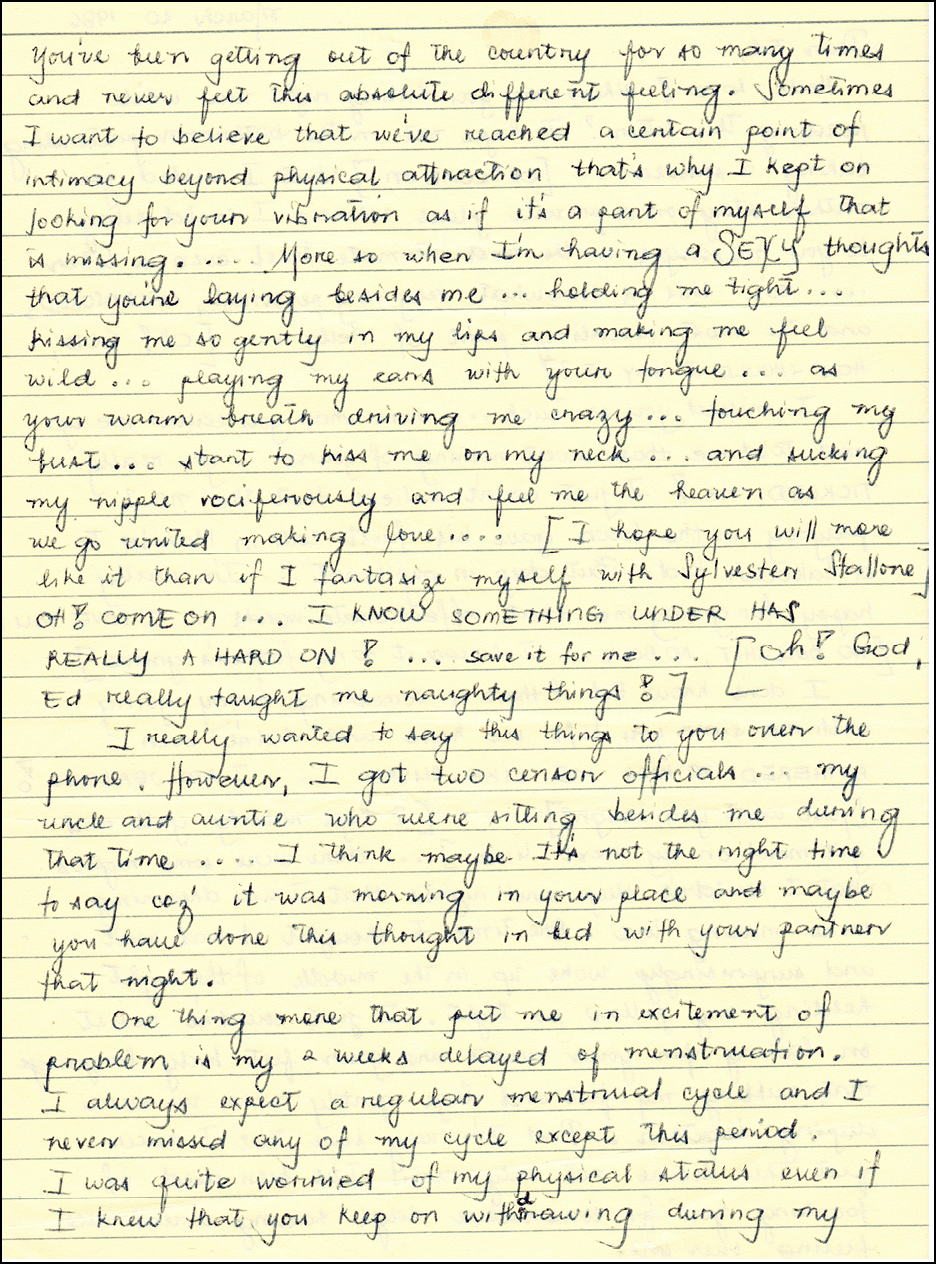 You've been getting out of the country for so many times
and never felt this absolute different feeling. Sometimes
I want to believe that we've reached a certain point of
intimacy beyond physical attraction that's why I kept on
looking for your vibration as if it's a part of myself that
is missing. .... More so when I'm having a SEXY thoughts
that you're laying besides me ... holding me tight ....
kissing me so gently in my lips and making me feel
wild ... playing my ears with your tongue .... as
your warm breath driving me crazy ... touching my
bust ... start to kiss me on my neck ... and sucking
my nipple vociferously and feel me the heaven as
we go united making love .... [ I hope you will more
like it than if I fantasize myself with Sylvester Stallone ]
OH! COME ON ... I KNOW SOMETHING UNDER HAS
REALLY A HARD ON ! .... save it for me ... [ Oh! God,
Ed really taught me naughty things ! ]
I really wanted to say this things to you over the
phone. However, I got two censor officials ... my
uncle and auntie who were sitting besides me during
that time .... I think maybe It's not the right time
to say coz' it was morning in your place and maybe
you have done this thought in bed with your partner
that night.
One thing more that put me in excitement of
problem is my 2 weeks delayed of menstruation.
I always expect a regular menstrual cycle and I
never missed any of my cycle except this period.
I was quite worried of my physical status even if
I knew that you keep on withdrawing during my